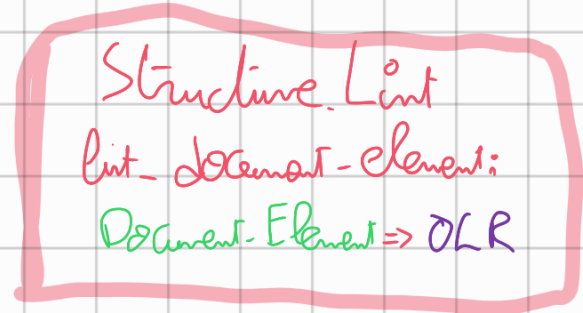 Structure.List
list_document-element:
Document-Element => OCR